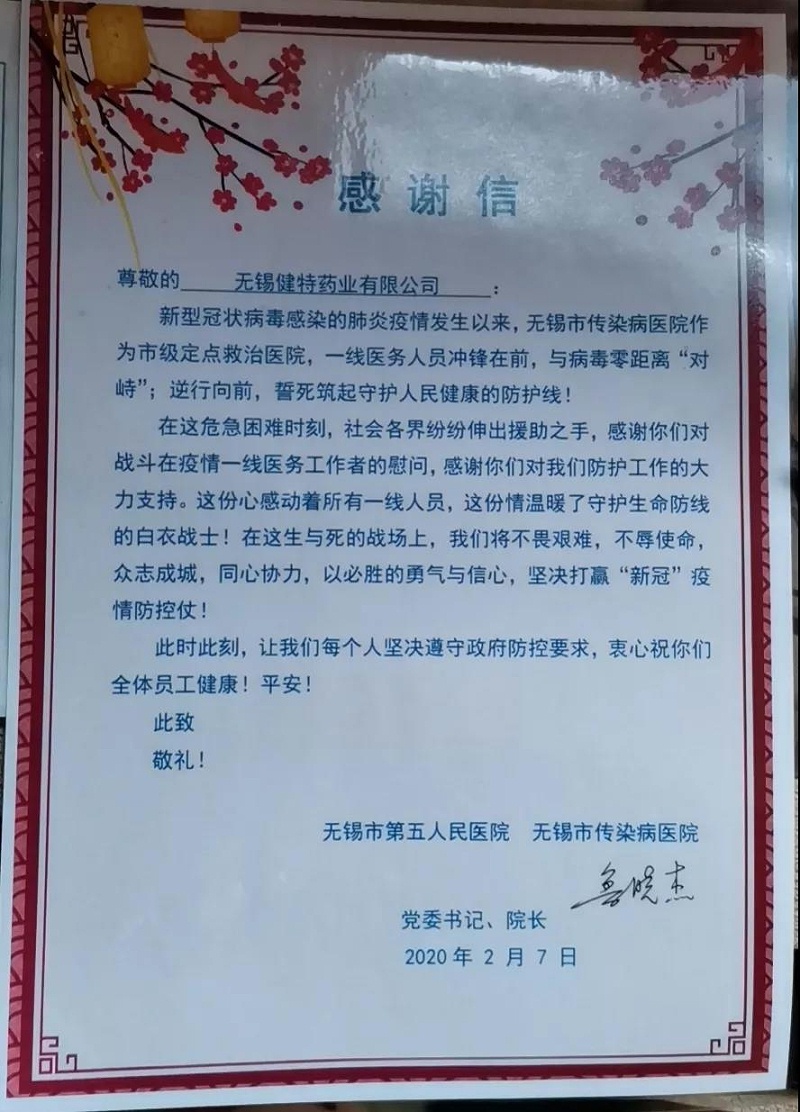 感谢信
尊敬的 无锡健特药业有限公司 ：
新型冠状病毒感染的肺炎疫情发生以来，无锡市传染病医院作
为市级定点救治医院，一线医务人员冲锋在前，与病毒零距离“对
峙”；逆行向前，誓死筑起守护人民健康的防护线！
在这危急困难时刻，社会各界纷纷伸出援助之手，感谢你们对
战斗在疫情一线医务工作者的慰问，感谢你们对我们防护工作的大
力支持。这份心感动着所有一线人员，这份情温暖了守护生命防线
的白衣战士！在这生与死的战场上，我们将不畏艰难，不辱使命，
众志成城，同心协力，以必胜的勇气与信心，坚决打赢“新冠”疫
情防控仗！
此时此刻，让我们每个人坚决遵守政府防控要求，衷心祝你们
全体员工健康！平安！
此致
敬礼！
无锡市第五人民医院 无锡市传染病医院
鲁晓杰
党委书记、院长
2020年2月7日